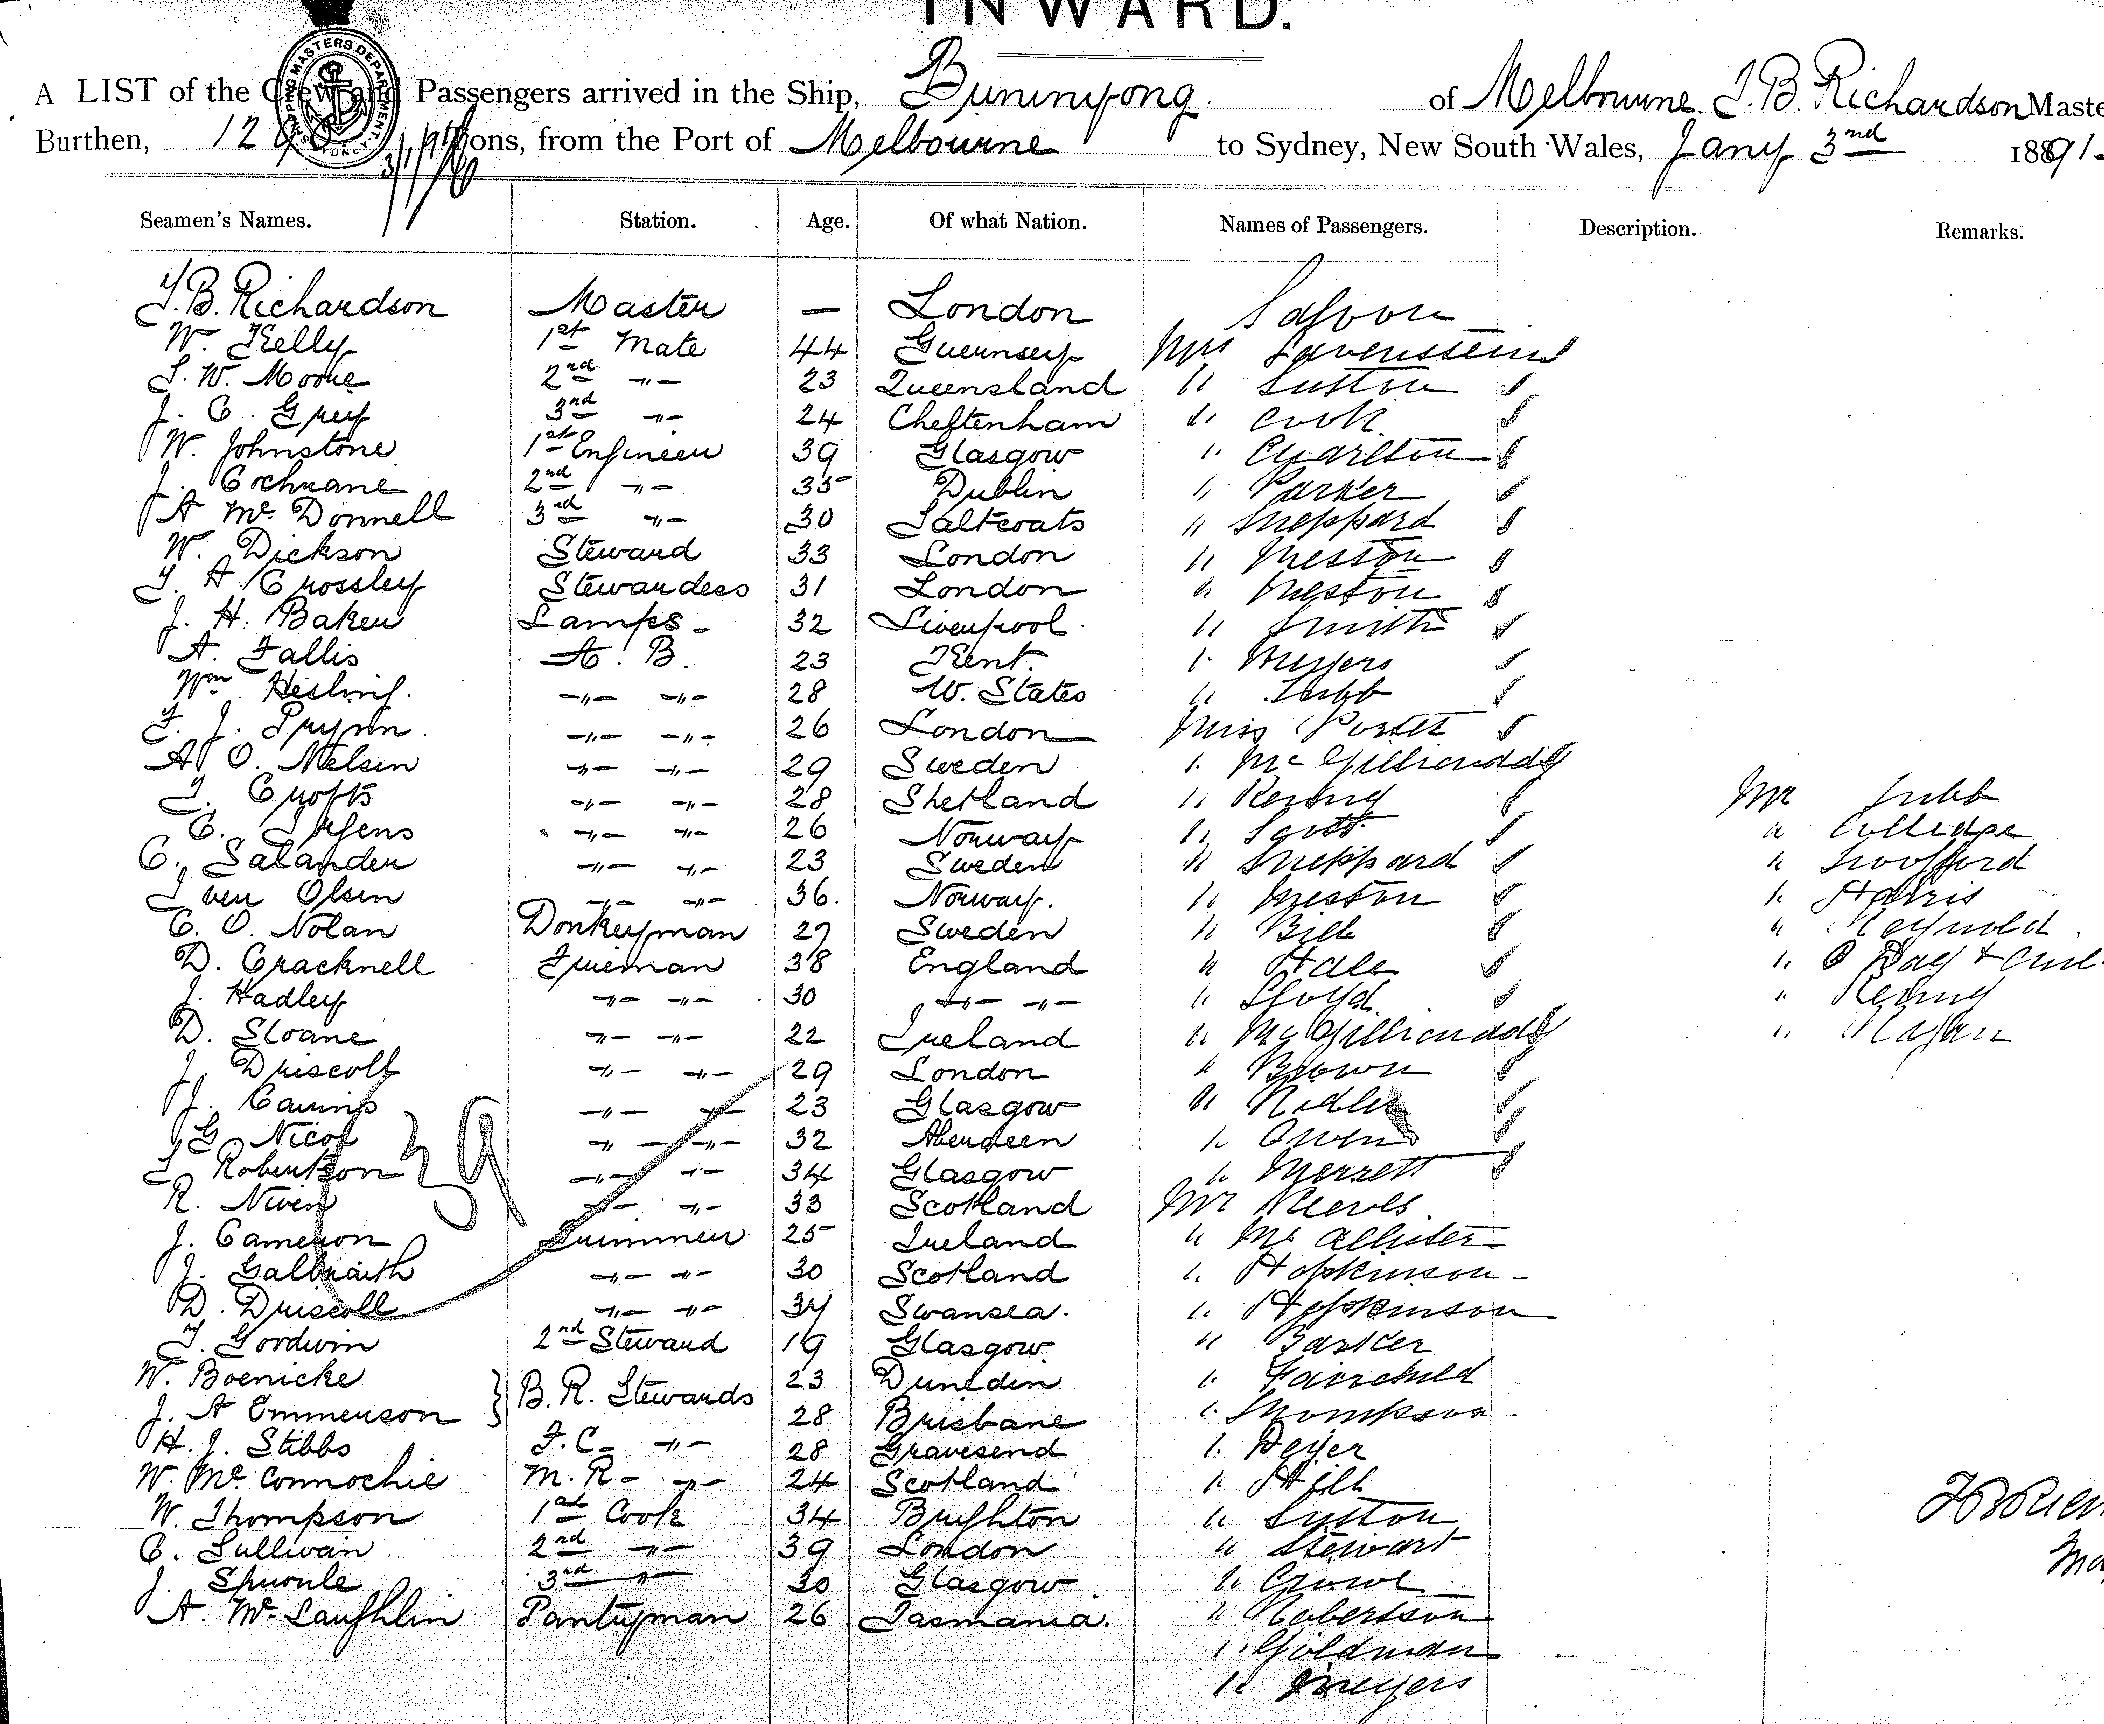 INWARD.
A LIST of the Crew and Passengers arrived in the Ship, Buninyong of Melbourne T. B. Richardson Maste
Burthen, tons, from the Port of Melbourne to Sydney, New South Wales, Jany 3nd 1891.
Seamen's Names. Station. Age. Of what Nation. Names of Passengers. Description. Remarks.
T. B. Richardson Master — London Saloon
W. Kelly 1st Mate 44 Guernsey Mrs Lavenstein
S. W. Moore 2nd -"- 23 Queensland " Sutton
J. C. Grey 3nd -"- 24 Cheltenham " Cook
W. Johnstone 1st Engineer 39 Glasgow " Charlton
J. Cochrane 2nd -"- 35 Dublin " Parker
A Mc Donnell 3rd -"- 30 Saltcoats " Sheppard
W. Dickson Steward 33 London " Meston
T. A. Crossley Stewardess 31 London " Meston
J. H. Baker Lamps - 32 Liverpool " Smith
A. Fallis A. B. 23 Kent. " Meyers
Wm -"- -"- 28 U. States " Jubb
F. J. Prynn -"- -"- 26 London Miss Porter
A. O. Nielsen -"- -"- 29 Sweden " McGillicuddy
T. Crofts -"- -"- 28 Shetland " Mr Jubb
C. -"- -"- 26 Norway " Scott "
C. Salander -"- -"- 23 Sweden " Sheppard "
Iven Olsen -"- -"- 36. Norway. " Meston " Harris
C. O. Nolan Donkeyman 27 Sweden " Bill " Reynold
D. Cracknell Fireman 38 England " Hale " Day +
J. Hadley -"- -"- 30 -"- -"- " Lloyd "
D. Sloane -"- -"- 22 Ireland " McGillicuddy "
J. Driscoll -"- -"- 29 London " Brown
J. Cairns -"- -"- 23 Glasgow " Ridler
G. Nicol -"- -"- 32 Aberdeen " Owen
T. Robertson -"- -"- 34 Glasgow " Merrett
R. Niven -"- -"- 33 Scotland Mr Reeves
J. Cameron Trimmer 25 Ireland " Mc Allister
J. Galbraith -"- -"- 30 Scotland " Hopkinson
D. Driscoll -"- -"- 34 Swansea. " Hopkinson
T. Gordwin 2nd Steward 19 Glasgow. " Barker
W. Boenicke } B. R. Stewards 23 Dunedin " Fairchild
J. A Emmerson 28 Brisbane " Thompson
H. J. Stibbs F. C- -"- 28 Gravesend "
W. Mc Connochie M. R- -"- 24 Scotland " Hill
W. Thompson 1st Cook 34 Brighton "
C. Sullivan 2nd -"- 39 London " Stewart
J. Sproule 3rd -"- 30 Glasgow "
A. Mc Laughlin Pantryman 26 Tasmania. " Robertson
" Goldman
" Meyers
39